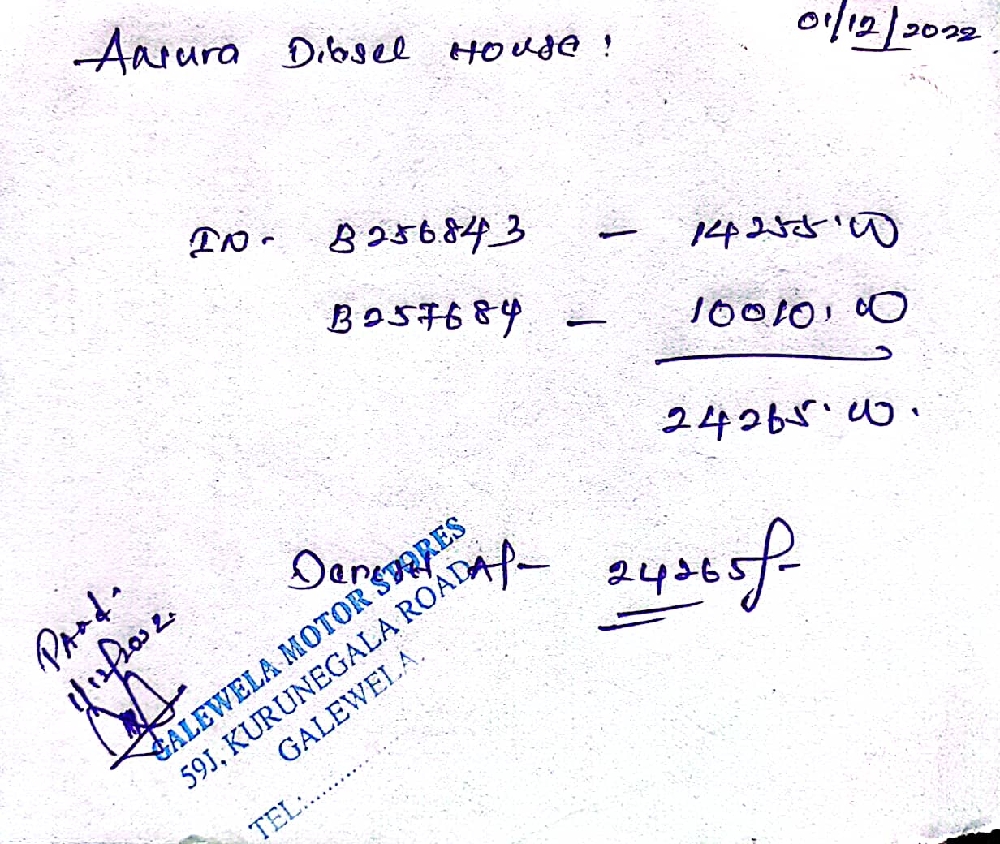 Aasura Diesel House!
01/12/2022
IN - B256843 - 14255.00
B257684 - 10010.00
24265.00.
24265/-
Paid.
1/12/2022
GALEWELA MOTOR STORES
591, KURUNEGALA ROAD,
GALEWELA.
TEL:............